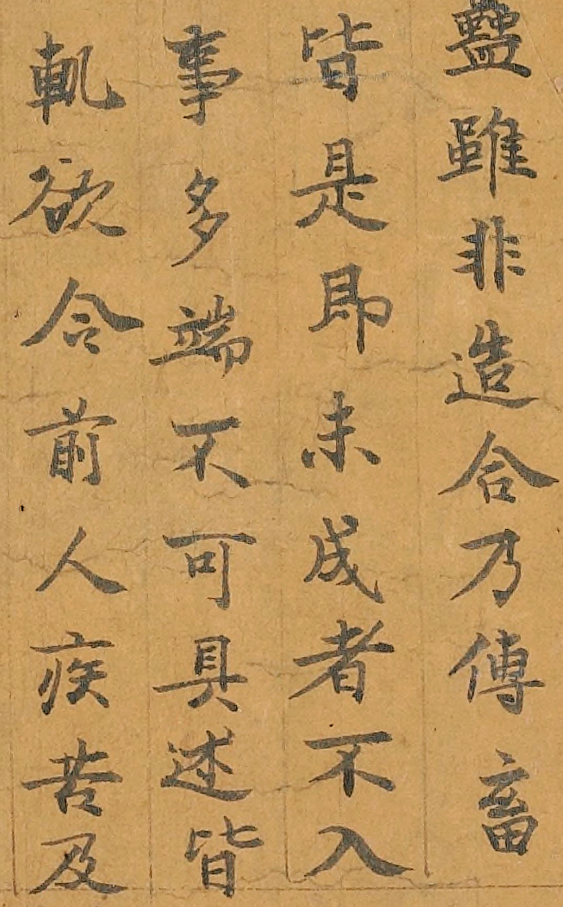 蠱雖非造合乃傳畜
皆是即未成者不入
事多端不可具述皆
軌欲令前人疾苦及